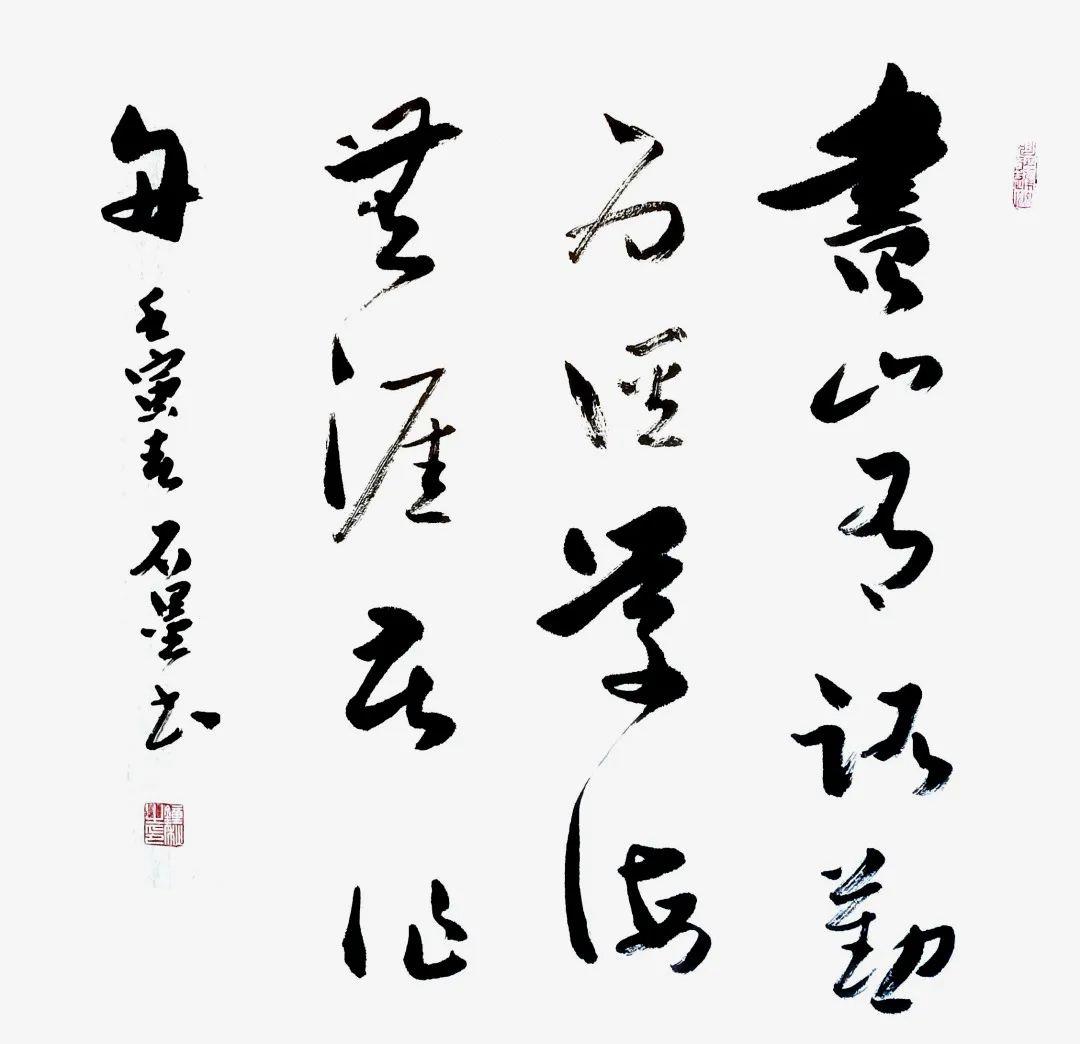 書山有路勤
为徑學海
無涯苦作
舟
壬寅春石墨书